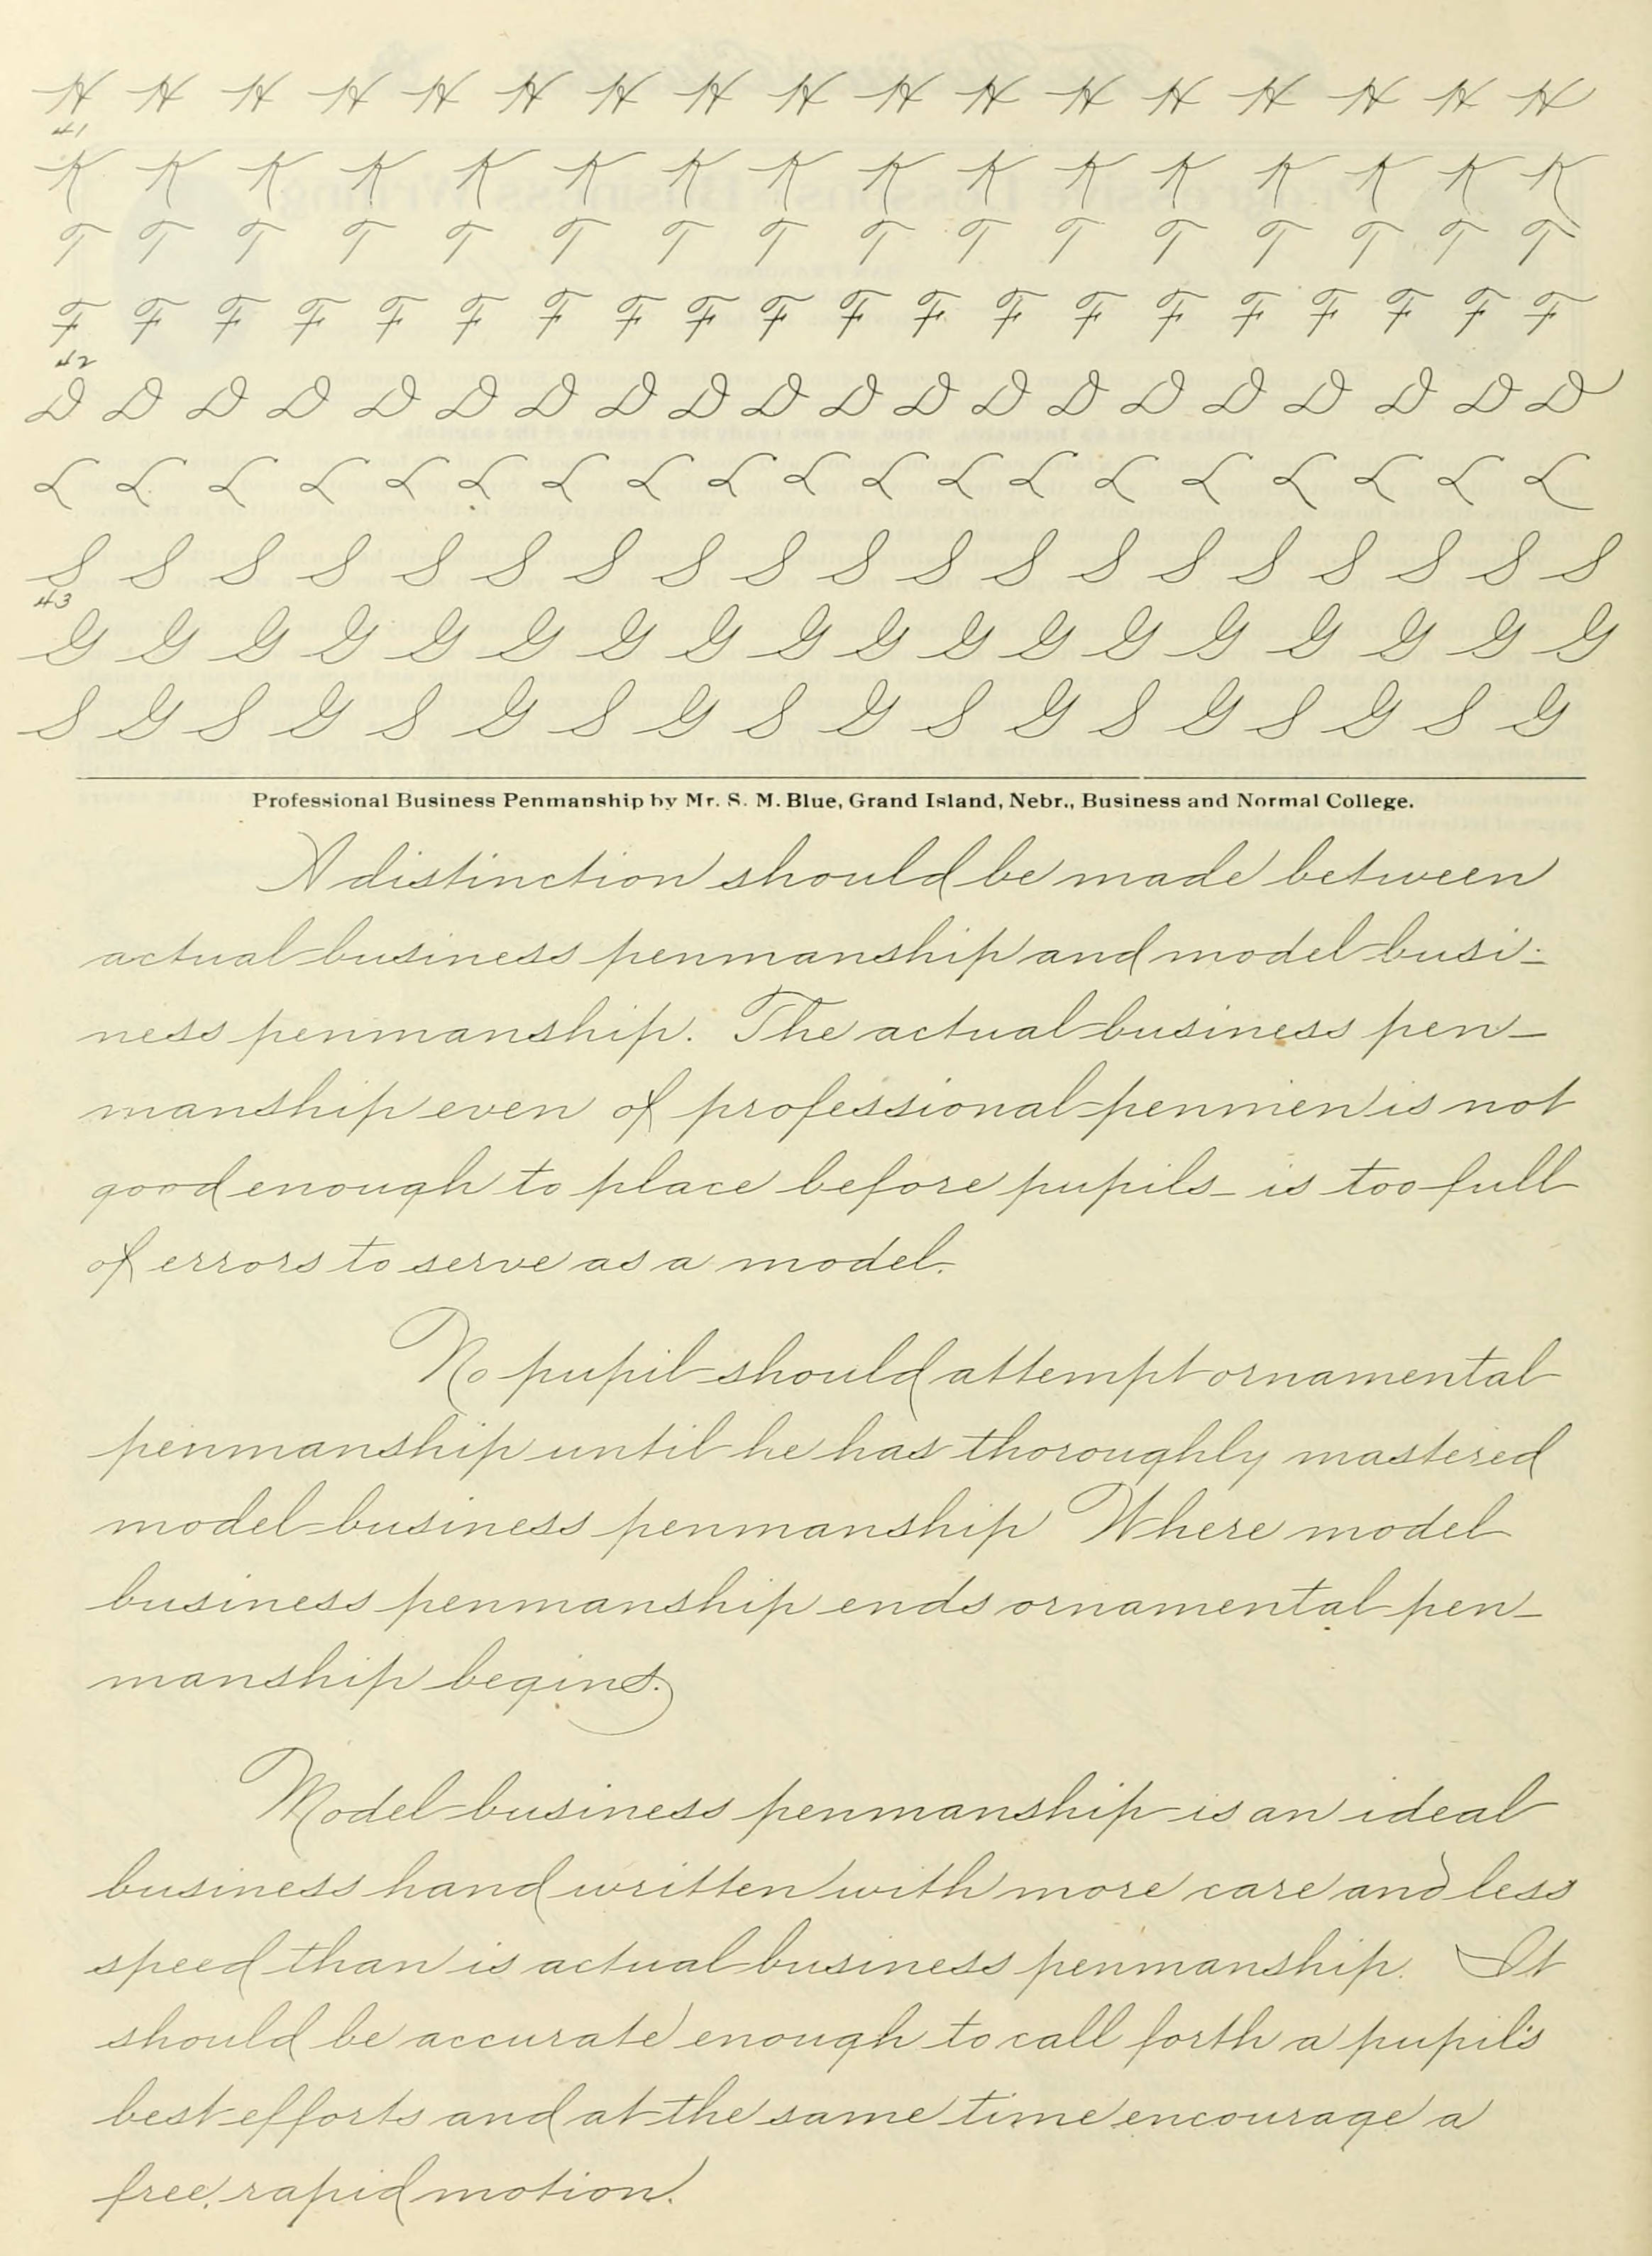 H H H H H H H H H H H H H H H H H
41
K K K K K K K K K K K K K K K K
T T T T T T T T T T T T T T T T
F F F F F F F F F F F F F F F F F F F F
42
D D D D D D D D D D D D D D D D D D D D
L L L L L L L L L L L L L L L L L L L
S S S S S S S S S S S S S S S S S S S
43
G G G G G G G G G G G G G G G G G G
S G S G S G S G S G S G S G S G S G
Professional Business Penmanship by Mr. S. M. Blue, Grand Island, Nebr., Business and Normal College.
A distinction should be made between
actual business penmanship and model busi-
ness penmanship. The actual business pen-
manship even of professional penmen is not
good enough to place before pupils - is too full
of errors to serve as a model.
No pupil should attempt ornamental
penmanship until he has thoroughly mastered
model business penmanship Where model
business penmanship ends ornamental pen-
manship begins.
Model business penmanship is an ideal
business hand written with more care and less
speed than is actual business penmanship. It
should be accurate enough to call forth a pupil's
best efforts and at the same time encourage a
free, rapid motion.